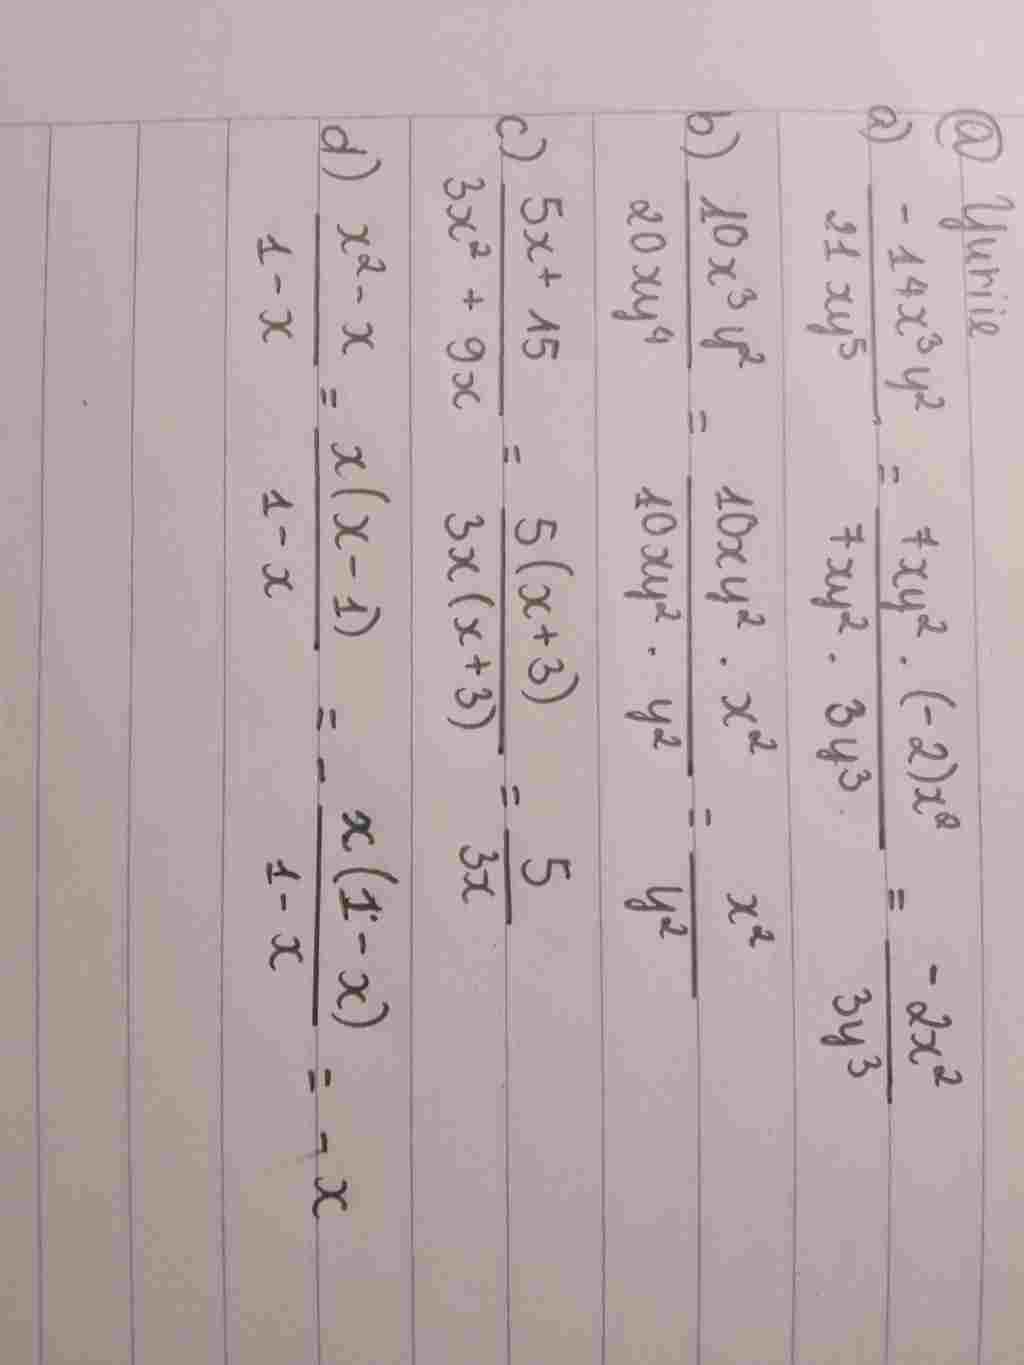 @ Yuriie
a) -14x³y² / 21xy⁵ = 7xy² . (-2)x² / 7xy² . 3y³ = -2x² / 3y³
b) 10x³y² / 20xy⁴ = 10xy² . x² / 10xy² . y² = x² / y²
c) 5x + 15 / 3x² + 9x = 5(x+3) / 3x(x+3) = 5 / 3x
d) x² - x / 1 - x = x(x-1) / 1 - x = - x(1-x) / 1 - x = -x